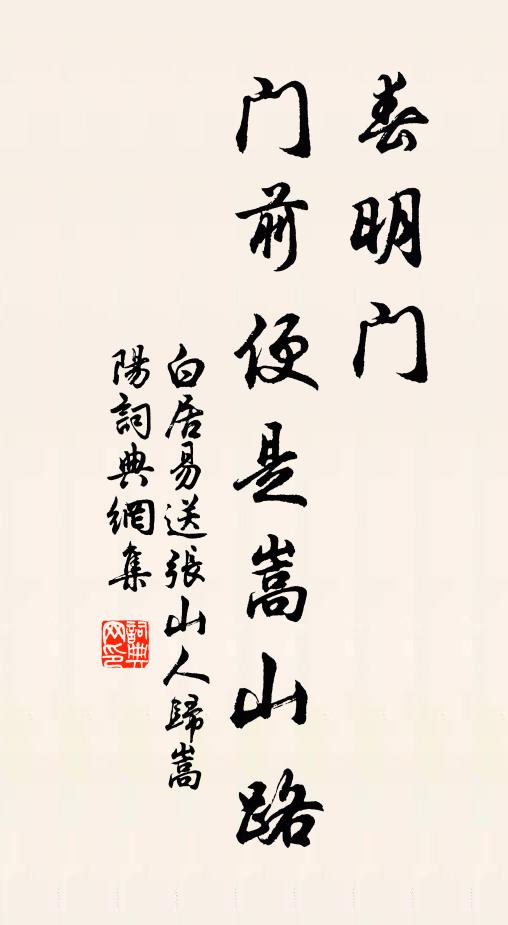 春明门
门前便是嵩山路
白居易送張山人歸嵩
陽詞典網集
詞典
网印